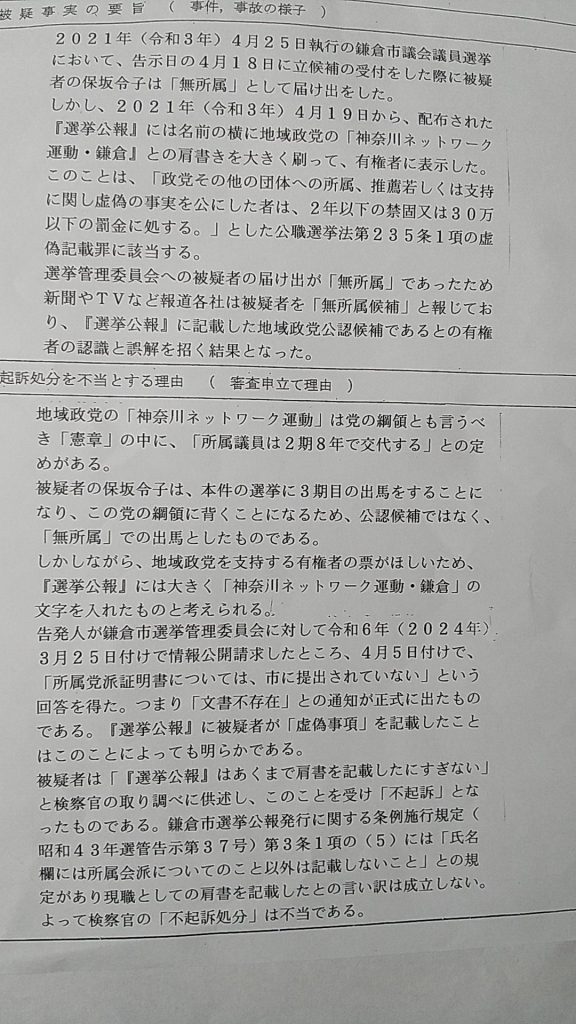 被疑事実の要旨 （ 事件，事故の様子 ）
２０２１年（令和３年）４月２５日執行の鎌倉市議会議員選挙
において、告示日の４月１８日に立候補の受付をした際に被疑
者の保坂令子は「無所属」として届け出をした。
しかし、２０２１年（令和３年）４月１９日から、配布された
『選挙公報』には名前の横に地域政党の「神奈川ネットワーク
運動・鎌倉』との肩書きを大きく刷って、有権者に表示した。
このことは、「政党その他の団体への所属、推薦若しくは支持
に関し虚偽の事実を公にした者は、２年以下の禁固又は３０万
以下の罰金に処する。」とした公職選挙法第２３５条１項の虚
偽記載罪に該当する。
選挙管理委員会への被疑者の届け出が「無所属」であったため
新聞やＴＶなど報道各社は被疑者を「無所属候補」と報じてお
り、『選挙公報』に記載した地域政党公認候補であるとの有権
者の認識と誤解を招く結果となった。
起訴処分を不当とする理由 （ 審査申立て理由 ）
地域政党の「神奈川ネットワーク運動」は党の綱領とも言うべ
き「憲章」の中に、「所属議員は２期８年で交代する」との定
めがある。
被疑者の保坂令子は、本件の選挙に３期目の出馬をすることに
なり、この党の綱領に背くことになるため、公認候補ではなく、
「無所属」での出馬としたものである。
しかしながら、地域政党を支持する有権者の票がほしいため、
『選挙公報』には大きく「神奈川ネットワーク運動・鎌倉」の
文字を入れたものと考えられる。
告発人が鎌倉市選挙管理委員会に対して令和６年（２０２４年）
３月２５日付けで情報公開請求したところ、４月５日付けで、
「所属党派証明書については、市に提出されていない」という
回答を得た。つまり「文書不存在」との通知が正式に出たもの
である。『選挙公報』に被疑者が「虚偽事項」を記載したこと
はこのことによっても明らかである。
被疑者は「『選挙公報』はあくまで肩書を記載したにすぎない」
と検察官の取り調べに供述し、このことを受け「不起訴」とな
ったものである。鎌倉市選挙公報発行に関する条例施行規定（
昭和４３年選管告示第３７号）第３条１項の（５）には「氏名
欄には所属会派についてのこと以外は記載しないこと」との規
定があり現職としての肩書を記載したとの言い訳は成立しない。
よって検察官の「不起訴処分」は不当である。